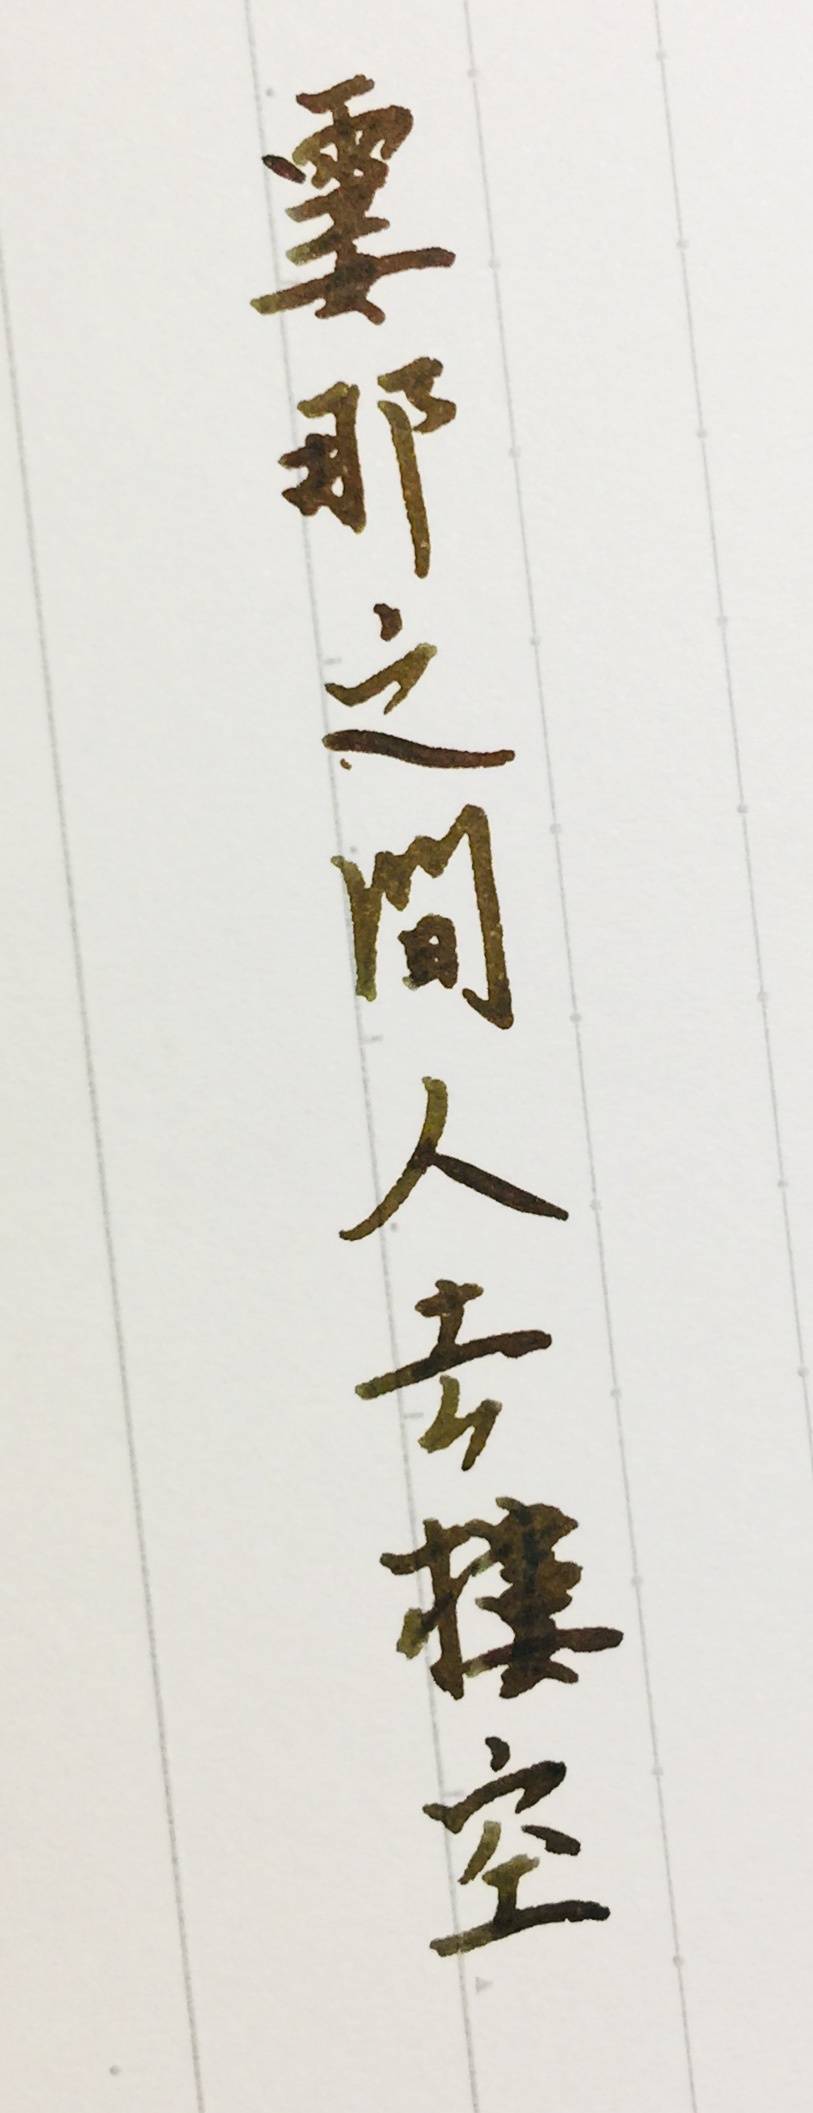 霎那之間人去樓空